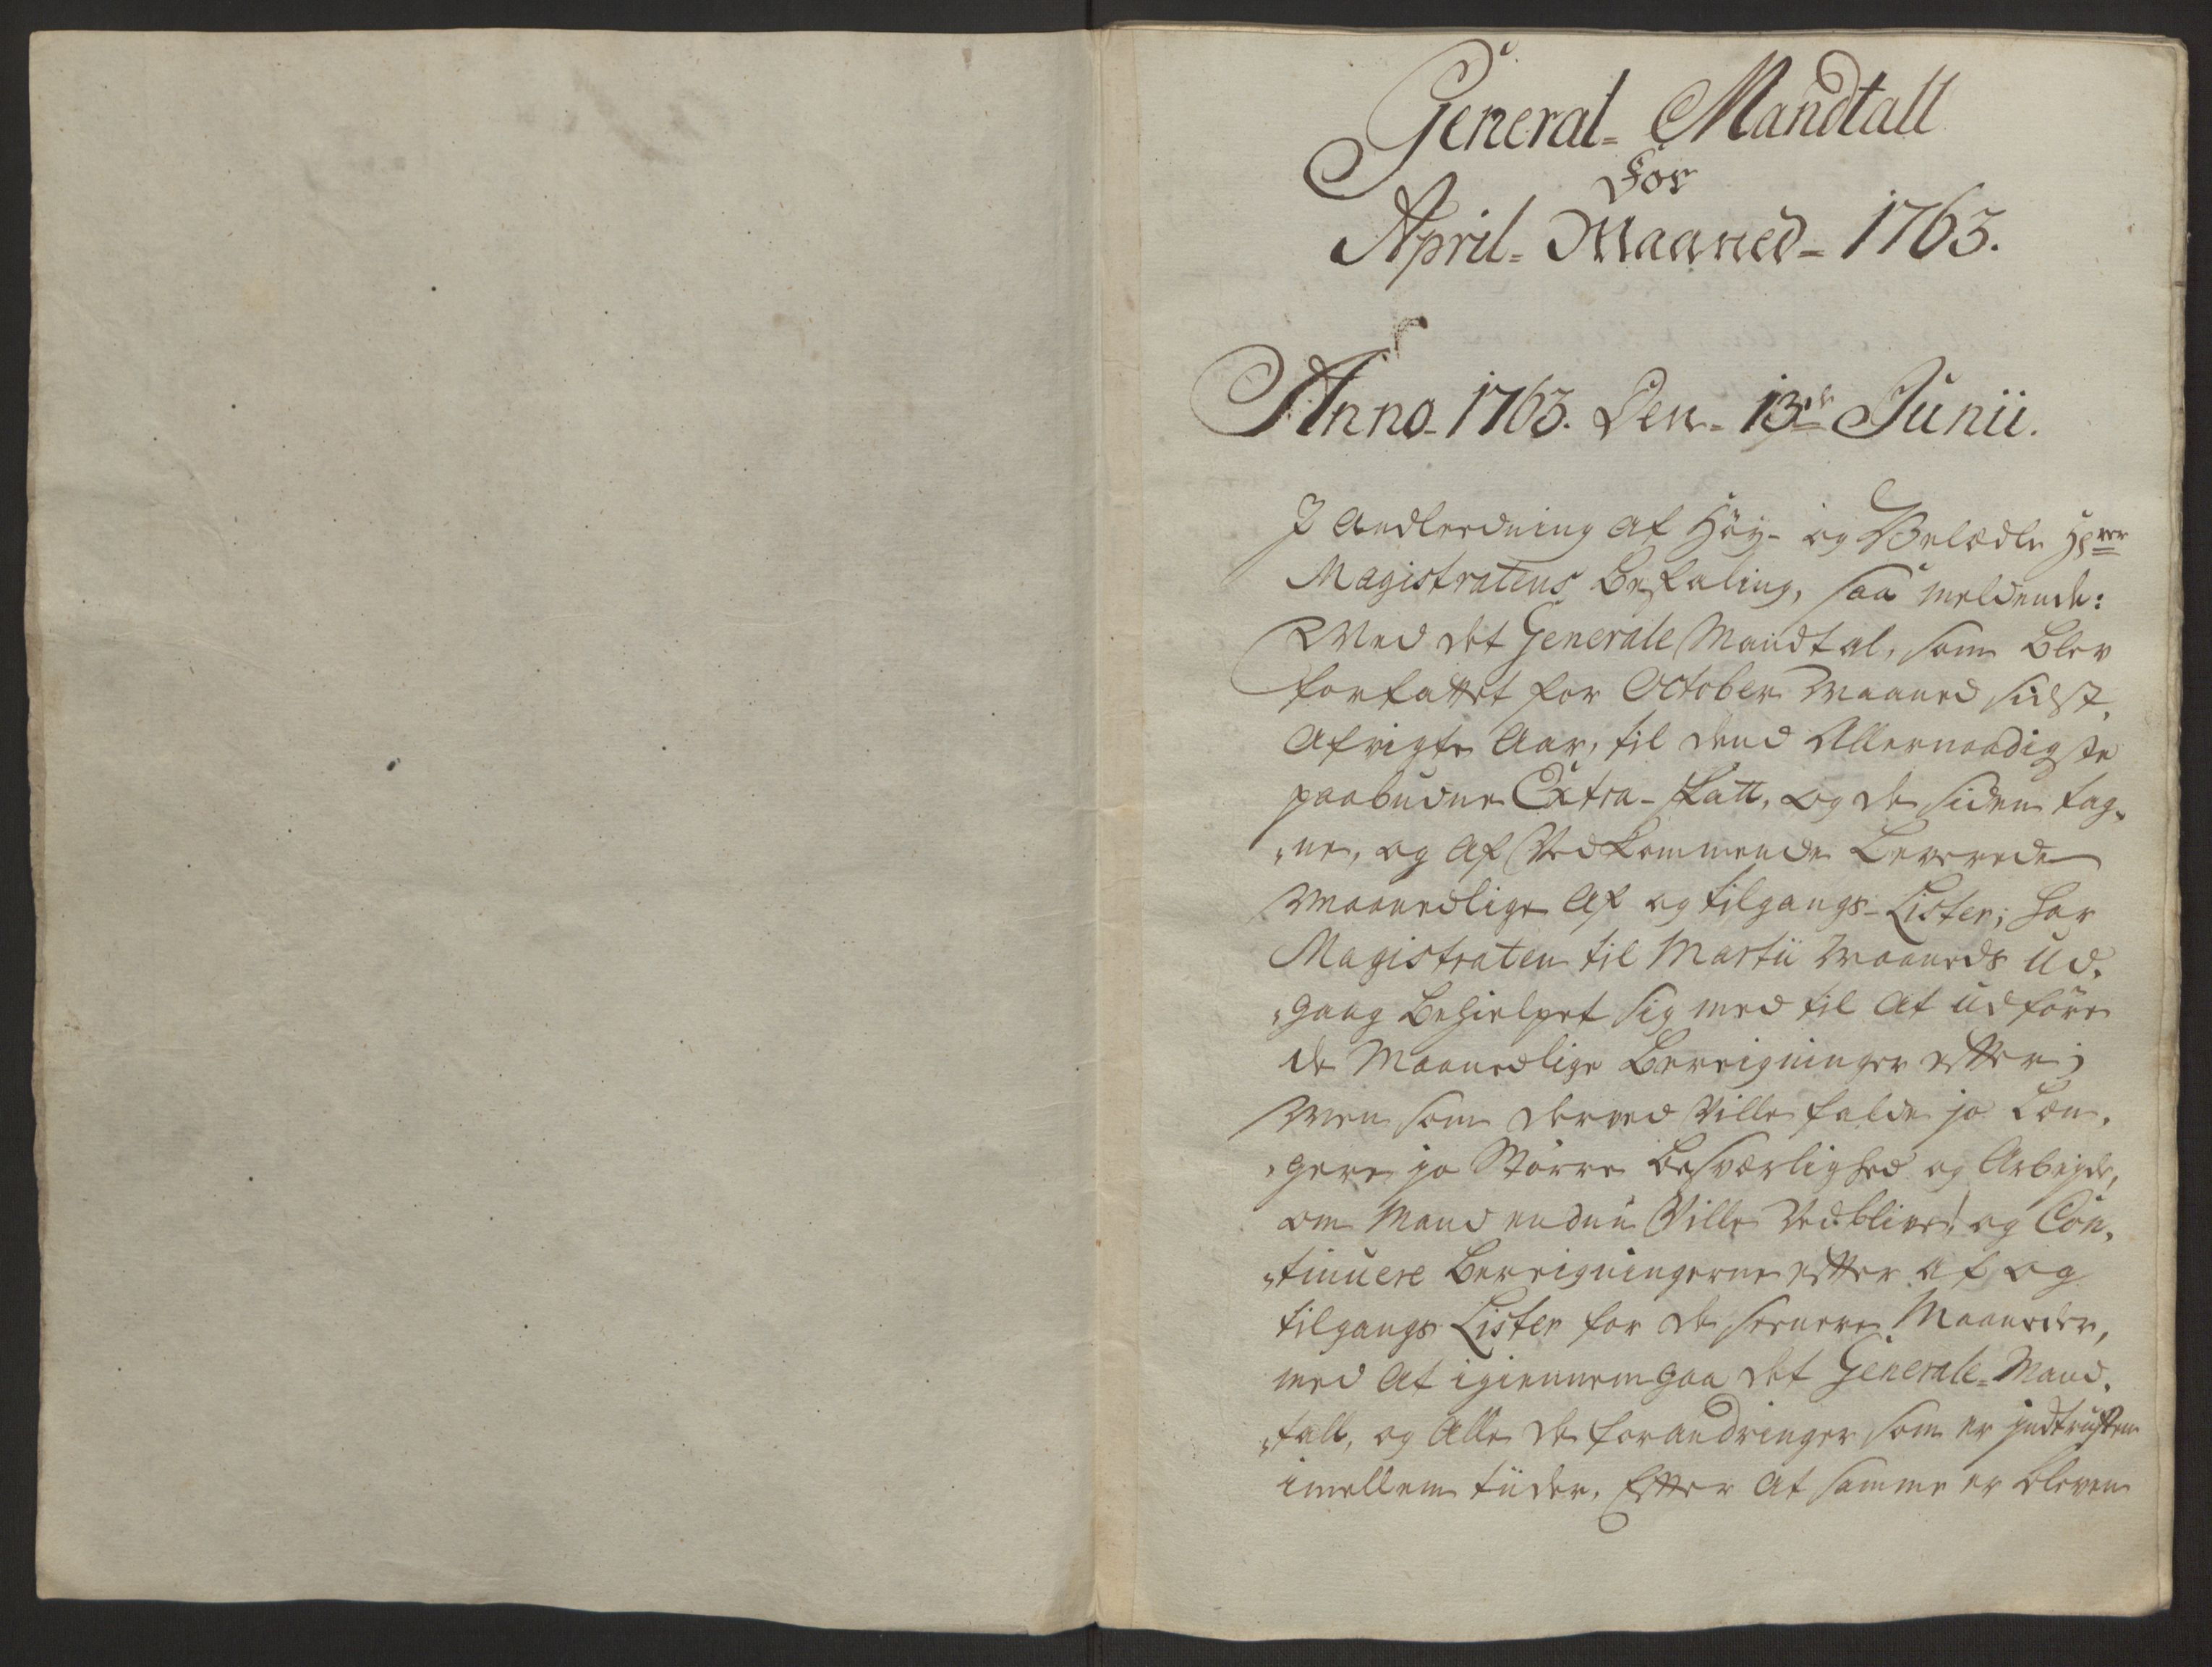 General- Mandtall
For
April- Maaned- 1763.
Anno 1763. Den- 13de Junii.
I Andledning af Høy- og Velædle Hrr
Magistratens Befaling, saa meldende:
Ved det Generale Mandtal, som blev
forfattet for October Maaned sidst.
Afvigte Aar, til dend Allernaadigste
paabudne Extra-Skatt, og de siden tag-
ne, og af Vedkommende Leverede
Maanedlige Af og tilgangs-Lister; har
Magistraten til Martii Maaneds Ud-
gang behielpet sig med til at udføre
de Maanedlige Bereigninger efter;
Men som derved Ville falde jo Læn-
gere jo Større besværlighed og Arbeyde,
om Mand endnu Ville Vedblive, og Con-
tinuere Bereigningerne efter af og
tilgangs Lister for de seenere Maaneder,
med at igiennemgaa det Generale-Mand-
tall, og Alle de forandringer som er indtruffen
imellem tiider. Efter at samme er bleven